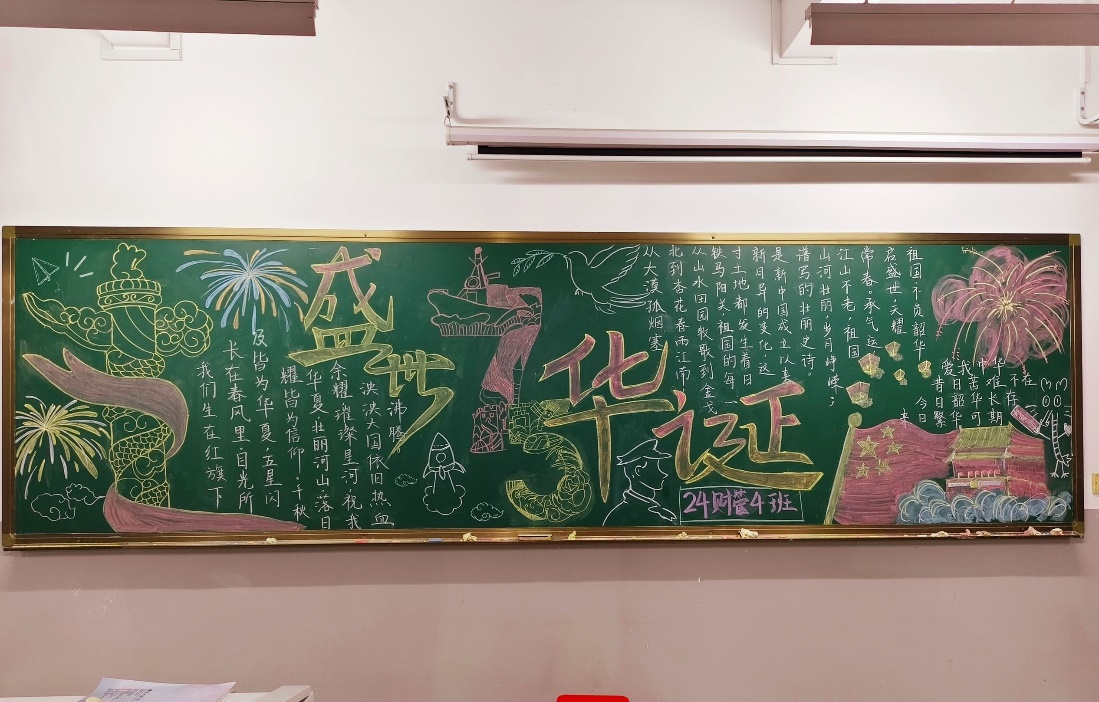 盛世华诞
我们生在红旗下
长在春风里,目光所
及皆为华夏,五星闪
耀皆为信仰,千秋
华夏壮丽河山落日
余耀璀璨星河祝我
泱泱大国依旧热血
沸腾
从大漠孤烟塞
北到杏花春雨江南
从山水田园牧歌到金戈
铁马阳关祖国的每一
寸土地都发生着日
新月异的变化,这
是新中国成立以来
谱写的壮丽史诗。
山河壮丽,岁月峥嵘;
江山不老,祖国
常春。承气运
启盛世,天耀
祖国不负韶华
爱我中华
昔日苦难不在
今日韶华长存
来日繁华可期
24财营4班